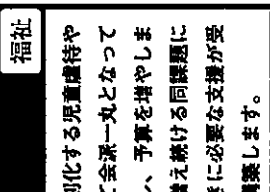 福祉
化する児童虐待や
会派一丸となって
、予算を増やしま
増え続ける同課題に
に必要な支援が受
構築します。